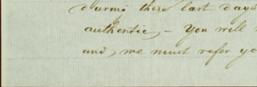 during these last days
authentic, – You will
and, we must refer yo